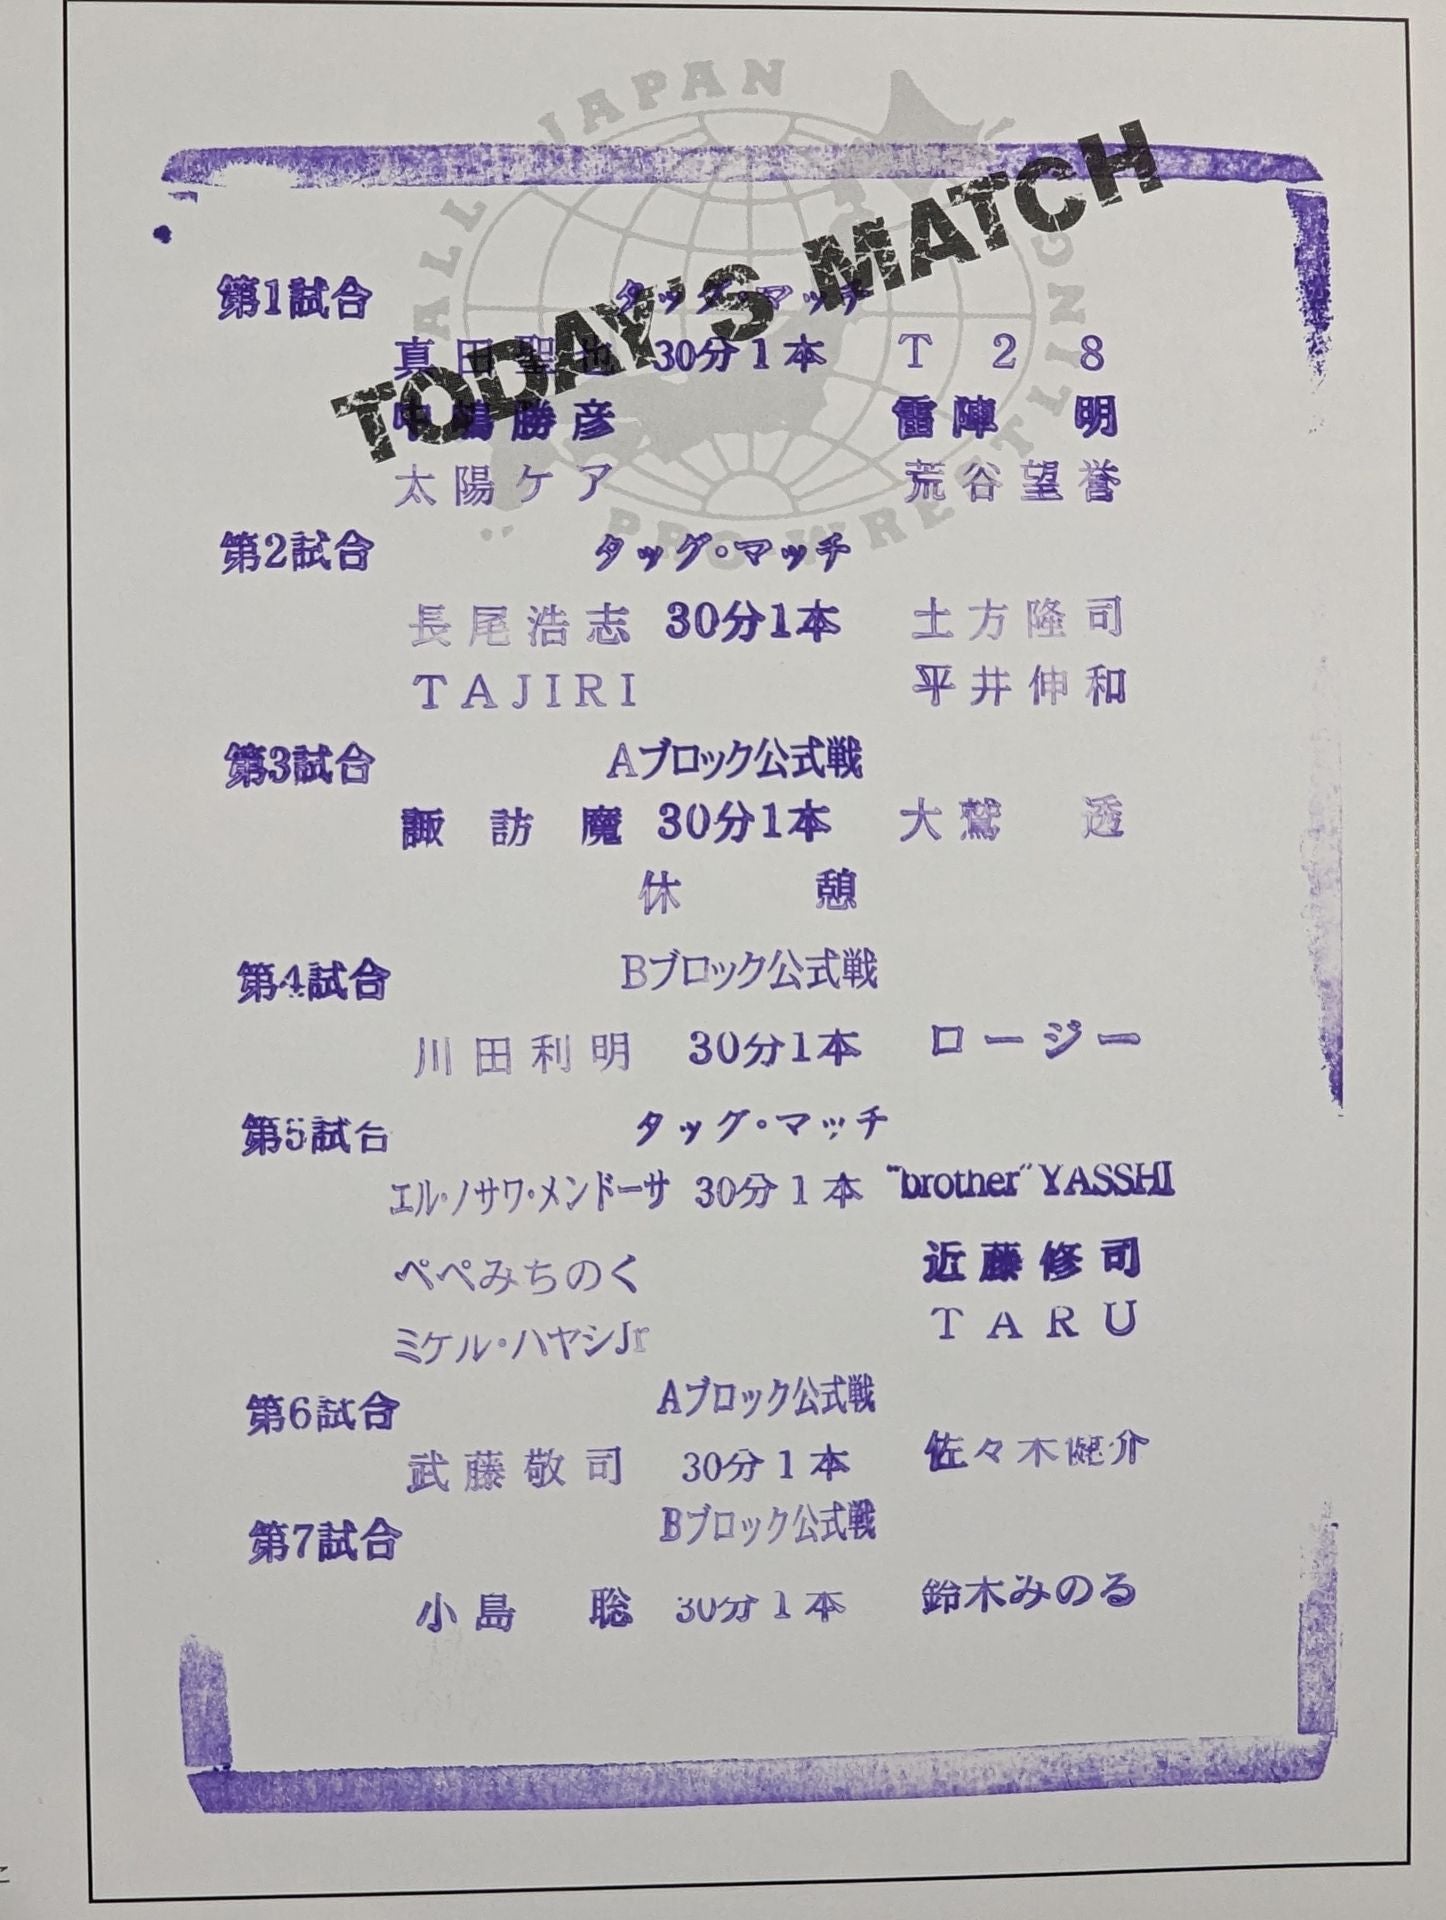 ALL JAPAN PRO-WRESTLING
TODAY'S MATCH
第1試合 タッグ・マッチ
真田聖也 30分1本 T28
中嶋勝彦 雷陣 明
太陽ケア 荒谷望誉
第2試合 タッグ・マッチ
長尾浩志 30分1本 土方隆司
TAJIRI 平井伸和
第3試合 Aブロック公式戦
諏訪魔 30分1本 大鷲 透
休憩
第4試合 Bブロック公式戦
川田利明 30分1本 ロージー
第5試合 タッグ・マッチ
エル・ノサワ・メンドーサ 30分1本 "brother"YASSHI
ペペみちのく 近藤修司
ミゲル・ハヤシJr TARU
第6試合 Aブロック公式戦
武藤敬司 30分1本 佐々木健介
第7試合 Bブロック公式戦
小島 聡 30分1本 鈴木みのる